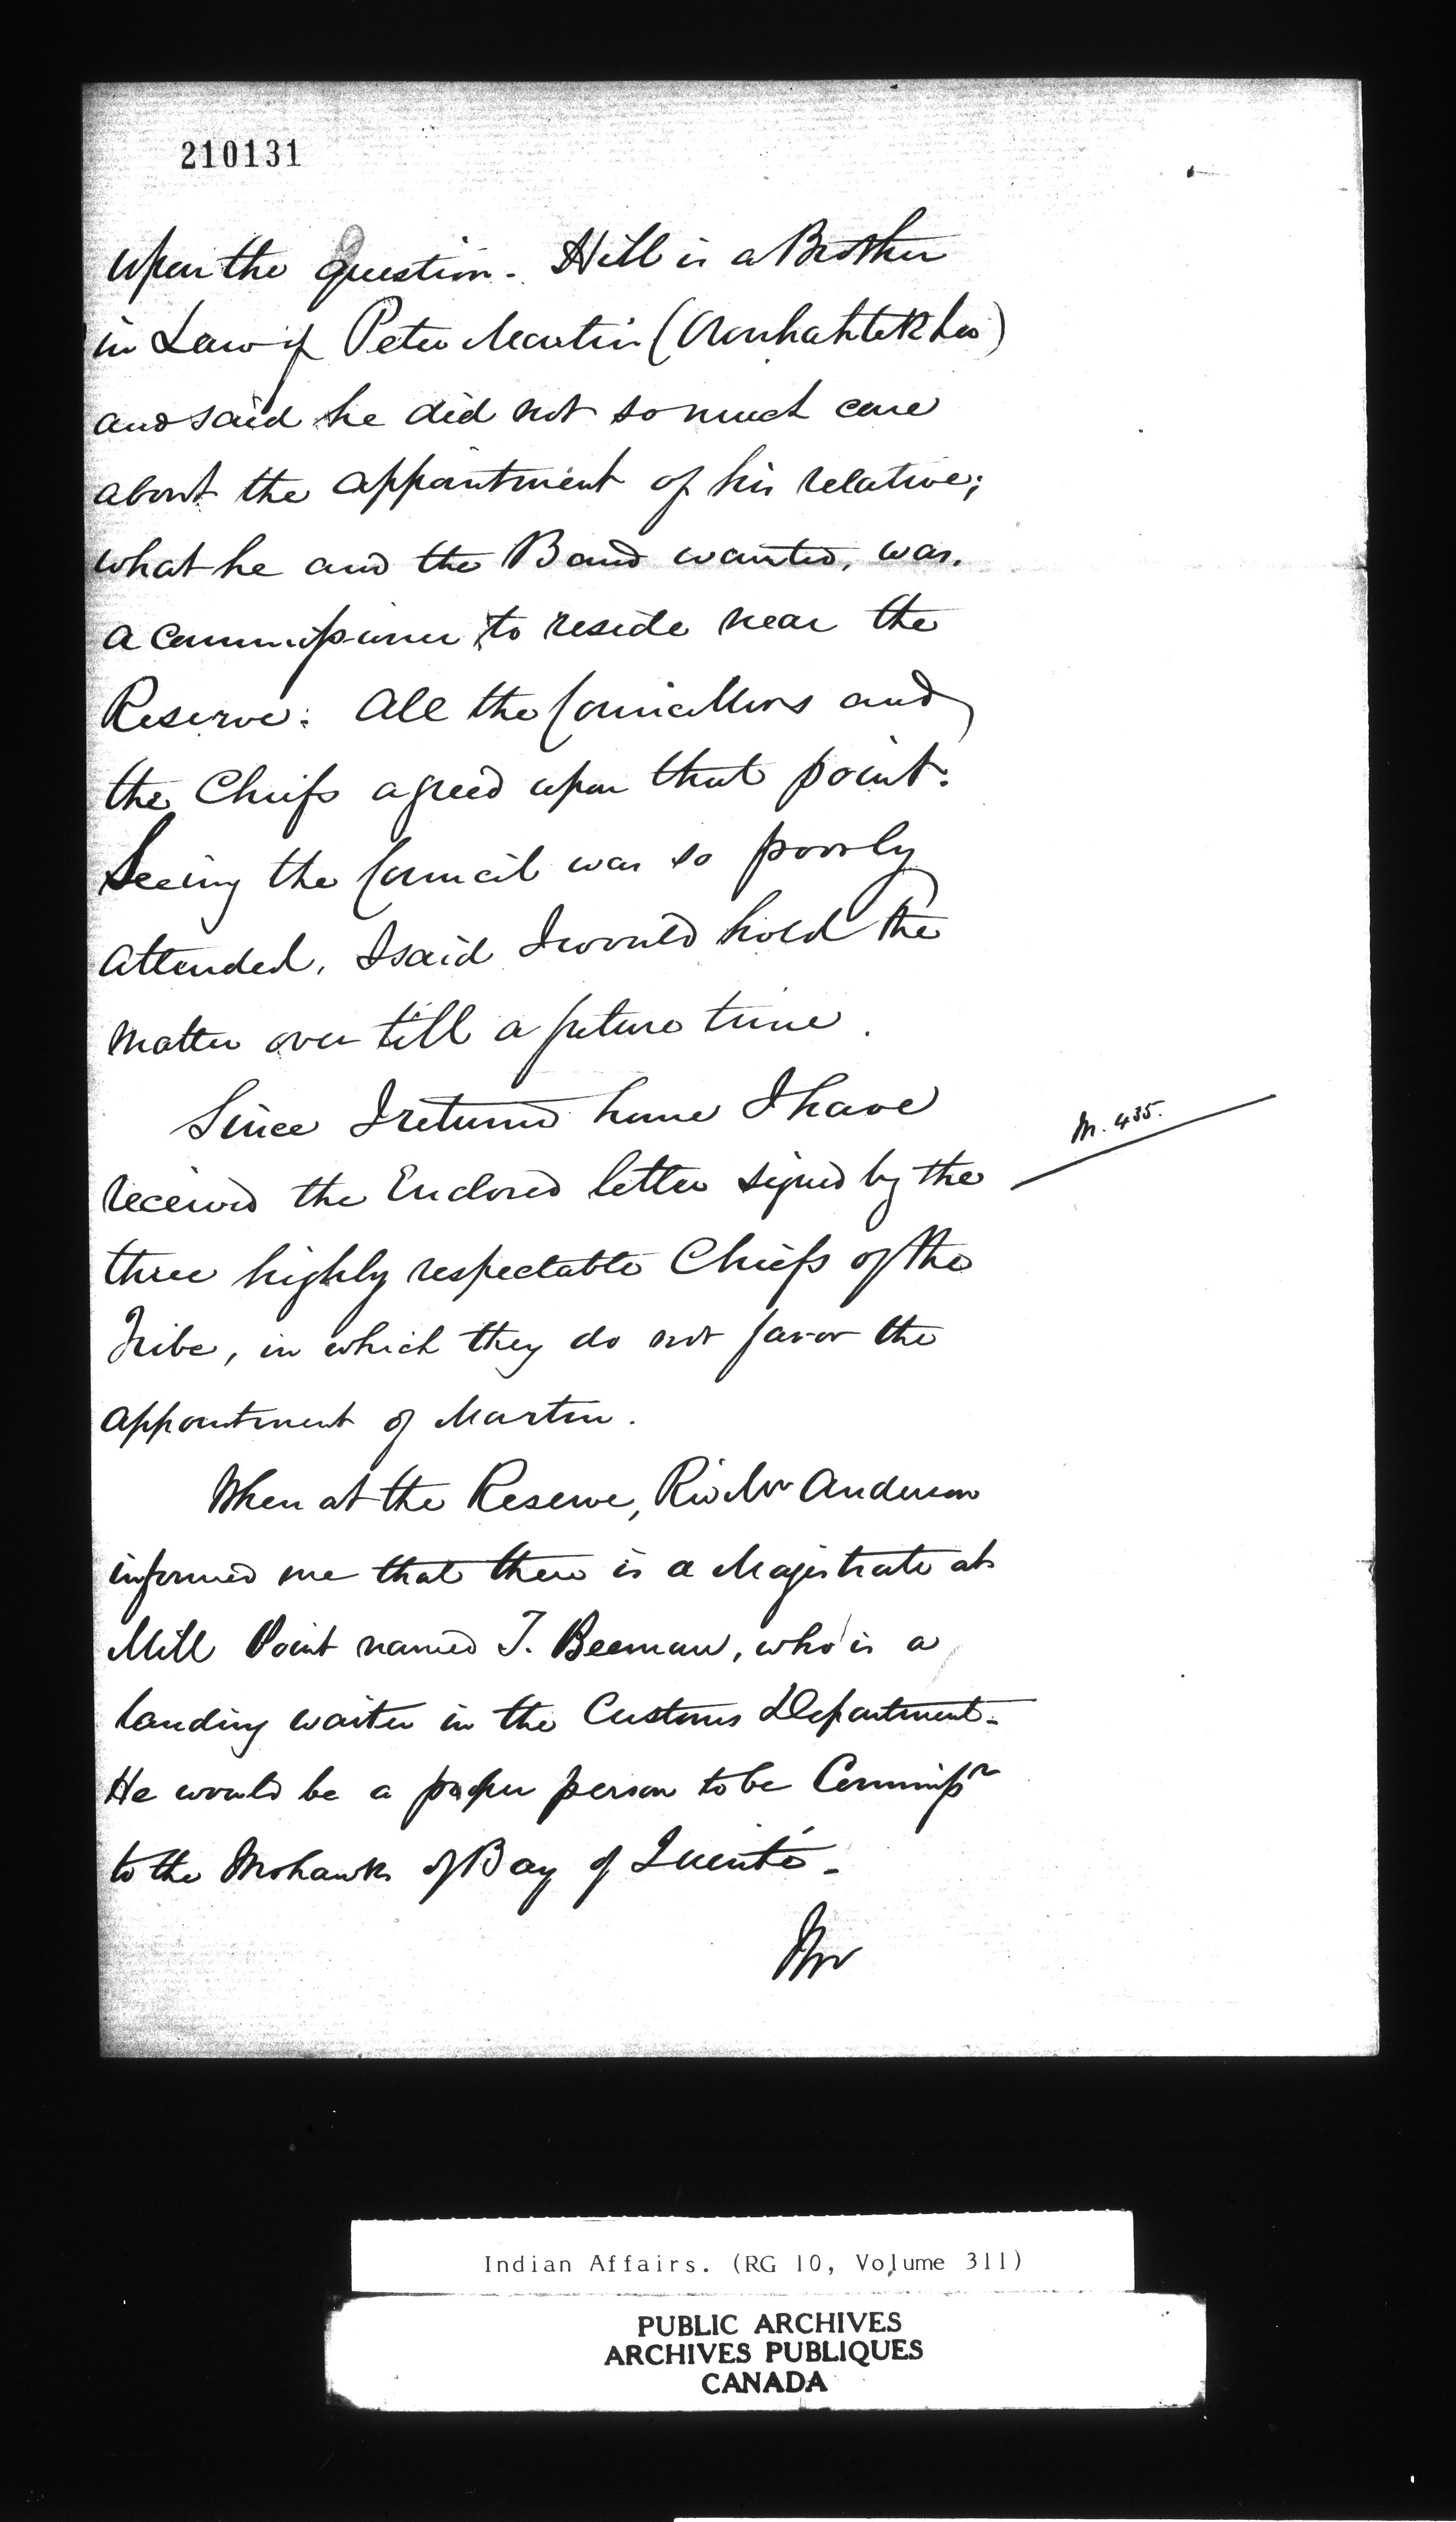 210131
upon the question. Hill is a Brother
in Law of Peter Martin (Oronhahtekha)
and said he did not so much care
about the appointment of his relative;
what he and the Band wanted, was,
a Commissioner to reside near the
Reserve: All the Councillors and
the Chiefs agreed upon that point.
Seeing the Council was so poorly
attended, I said I would hold the
matter over till a future time.
Since I returned home I have
M. 435.
received the Enclosed letter signed by the
three highly respectable Chiefs of the
Tribe, in which they do not favor the
appointment of Martin.
When at the Reserve, Rev Mr Anderson
informed me that there is a Magistrate at
Mill Point named T. Beeman, who is a
landing waiter in the Customs Department-
He would be a proper person to be Commissr
to the Mohawks of Bay of Quinté-
Indian Affairs. (RG 10, Volume 311)
PUBLIC ARCHIVES
ARCHIVES PUBLIQUES
CANADA